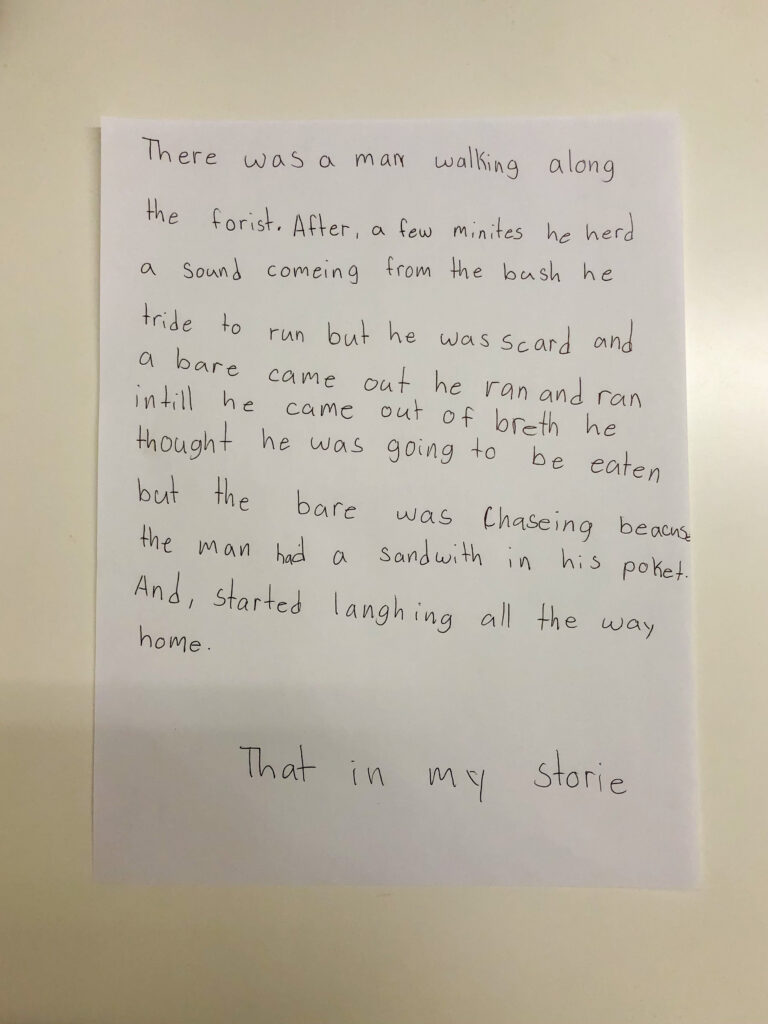 There was a man walking along
the forist. After, a few minites he herd
a sound comeing from the bush he
tride to run but he was scard and
a bare came out he ran and ran
intill he came out of breth he
thought he was going to be eaten
but the bare was Chaseing beacuse
the man had a sandwith in his poket.
And, started langhing all the way
home.
That in my storie